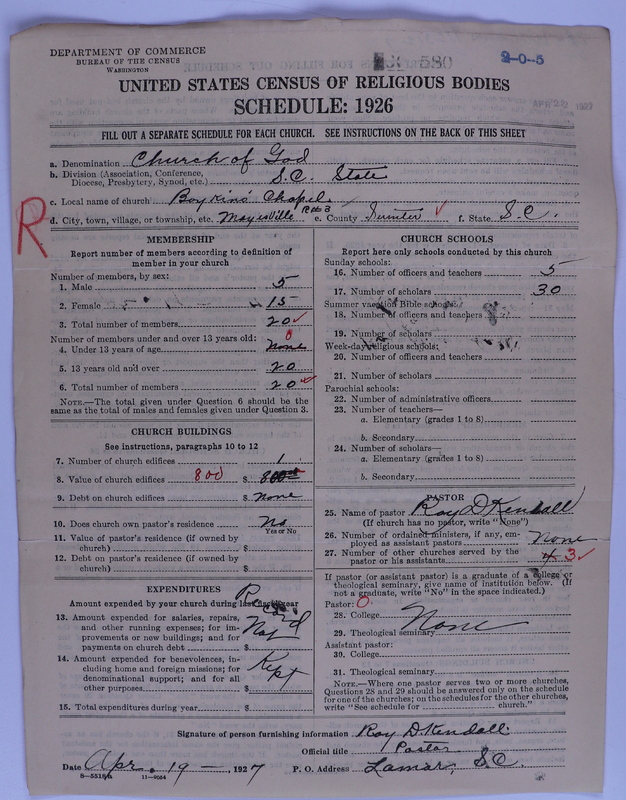 DEPARTMENT OF COMMERCE
BUREAU OF THE CENSUS
WASHINGTON
580
2-0-5
UNITED STATES CENSUS OF RELIGIOUS BODIES
SCHEDULE: 1926
APR 22 1927
FILL OUT A SEPARATE SCHEDULE FOR EACH CHURCH. SEE INSTRUCTIONS ON THE BACK OF THIS SHEET
a. Denomination Church of God
b. Division (Association, Conference, Diocese, Presbytery, Synod, etc.) S.C. State
c. Local name of church Boykins Chapel
d. City, town, village, or township, etc. Mayesville e. County Sumter ✓ f. State S.C.
R
MEMBERSHIP
Report number of members according to definition of
member in your church
Number of members, by sex:
1. Male 5
2. Female 15
3. Total number of members 20 ✓
Number of members under and over 13 years old: 0
4. Under 13 years of age None
5. 13 years old and over 20
6. Total number of members 20 ✓
NOTE.—The total given under Question 6 should be
the same as the total of males and females given under Question 3.
CHURCH BUILDINGS
See instructions, paragraphs 10 to 12
7. Number of church edifices 1
8. Value of church edifices 800 $
9. Debt on church edifices $ None
10. Does church own pastor's residence No
Yes or No
11. Value of pastor's residence (if owned by
church) $
12. Debt on pastor's residence (if owned by
church) $
EXPENDITURES
Amount expended by your church during last fiscal year
Record
13. Amount expended for salaries, repairs,
and other running expenses; for im-
provements or new buildings; and for
payments on church debt $ Not
14. Amount expended for benevolences, in-
cluding home and foreign missions; for
denominational support; and for all
other purposes $ Kept
15. Total expenditures during year $
CHURCH SCHOOLS
Report here only schools conducted by this church
Sunday schools:
16. Number of officers and teachers 5
17. Number of scholars 30
Summer vacation Bible schools:
18. Number of officers and teachers
19. Number of scholars
Week-day religious schools:
20. Number of officers and teachers
21. Number of scholars
Parochial schools:
22. Number of administrative officers
23. Number of teachers—
a. Elementary (grades 1 to 8)
b. Secondary
24. Number of scholars—
a. Elementary (grades 1 to 8)
b. Secondary
PASTOR
25. Name of pastor Roy D Kendall
(If church has no pastor, write "None")
26. Number of ordained ministers, if any, em-
ployed as assistant pastors None
27. Number of other churches served by the
pastor or his assistants 4 3 ✓
If pastor (or assistant pastor) is a graduate of a college or
theological seminary, give name of institution below. (If
not a graduate, write "No" in the space indicated.)
Pastor: O.
28. College
29. Theological seminary None
Assistant pastor:
30. College
31. Theological seminary
NOTE.—Where one pastor serves two or more churches,
Questions 28 and 29 should be answered only on the schedule
for one of the churches; on the schedules for the other churches,
write "See schedule for church."
Signature of person furnishing information Roy D Kendall
Official title Pastor
Date Apr. 19 — , 1927 P. O. Address Lamar, S.C.
8—5518a 11—9064